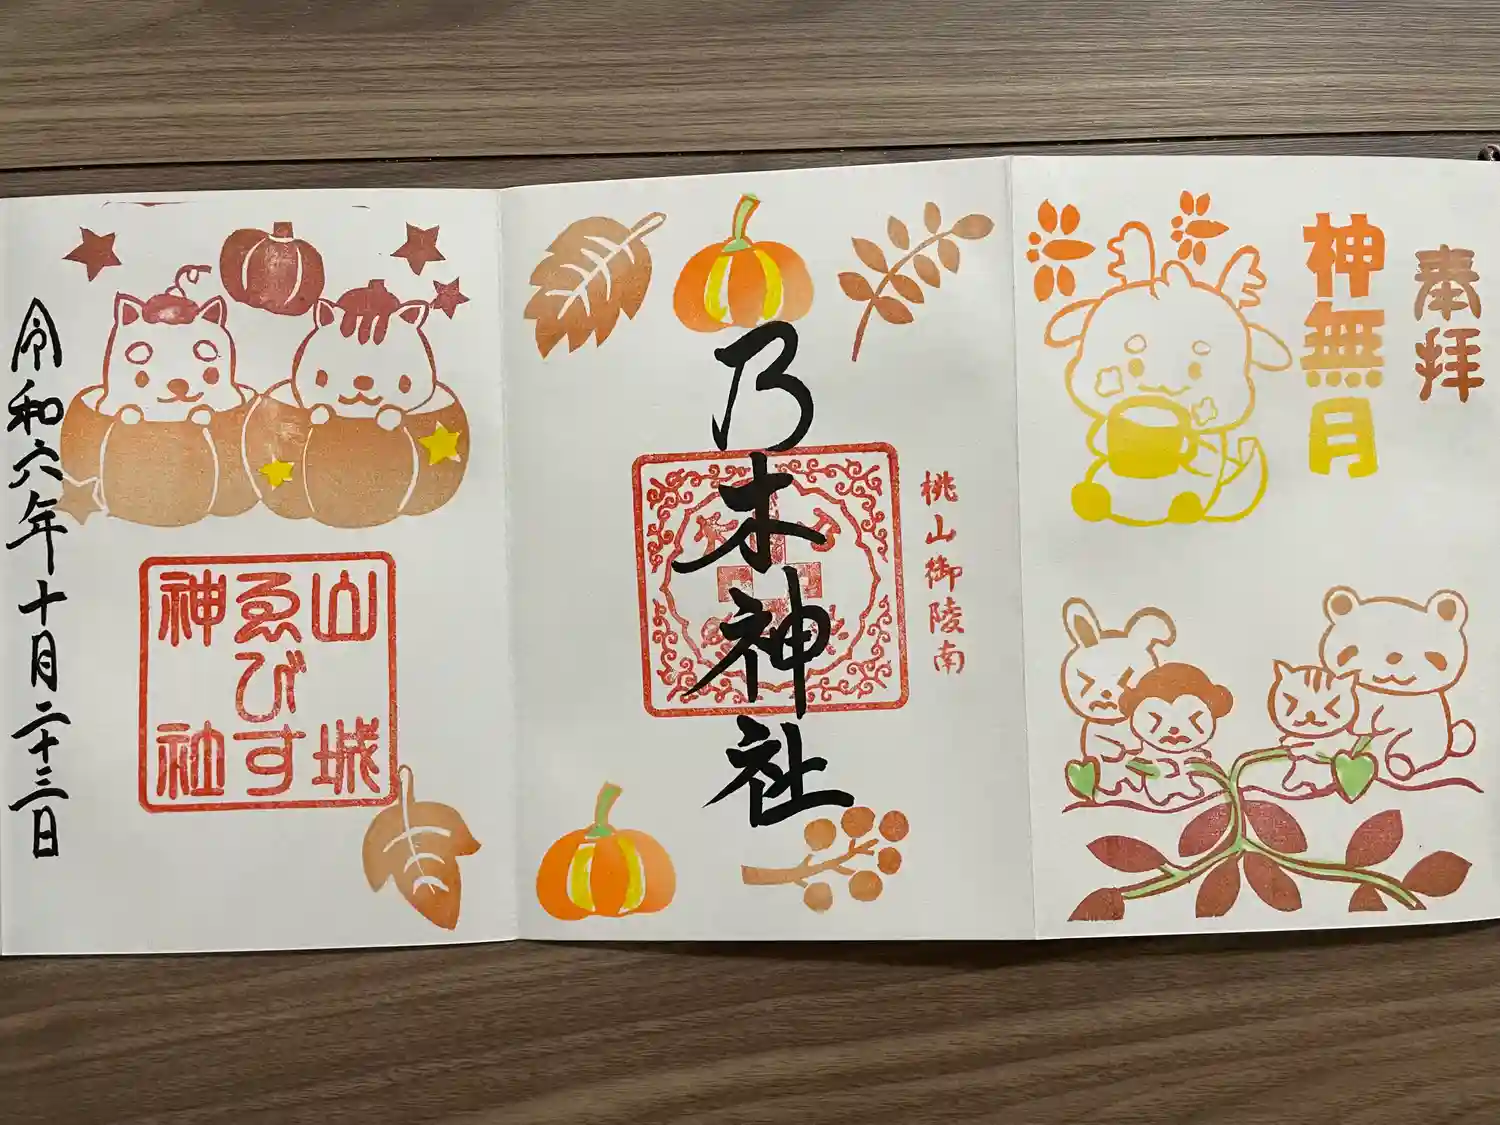 奉拝
神無月
桃山御陵南
乃木神社
山城
ゑびす
神社
令和六年十月二十三日